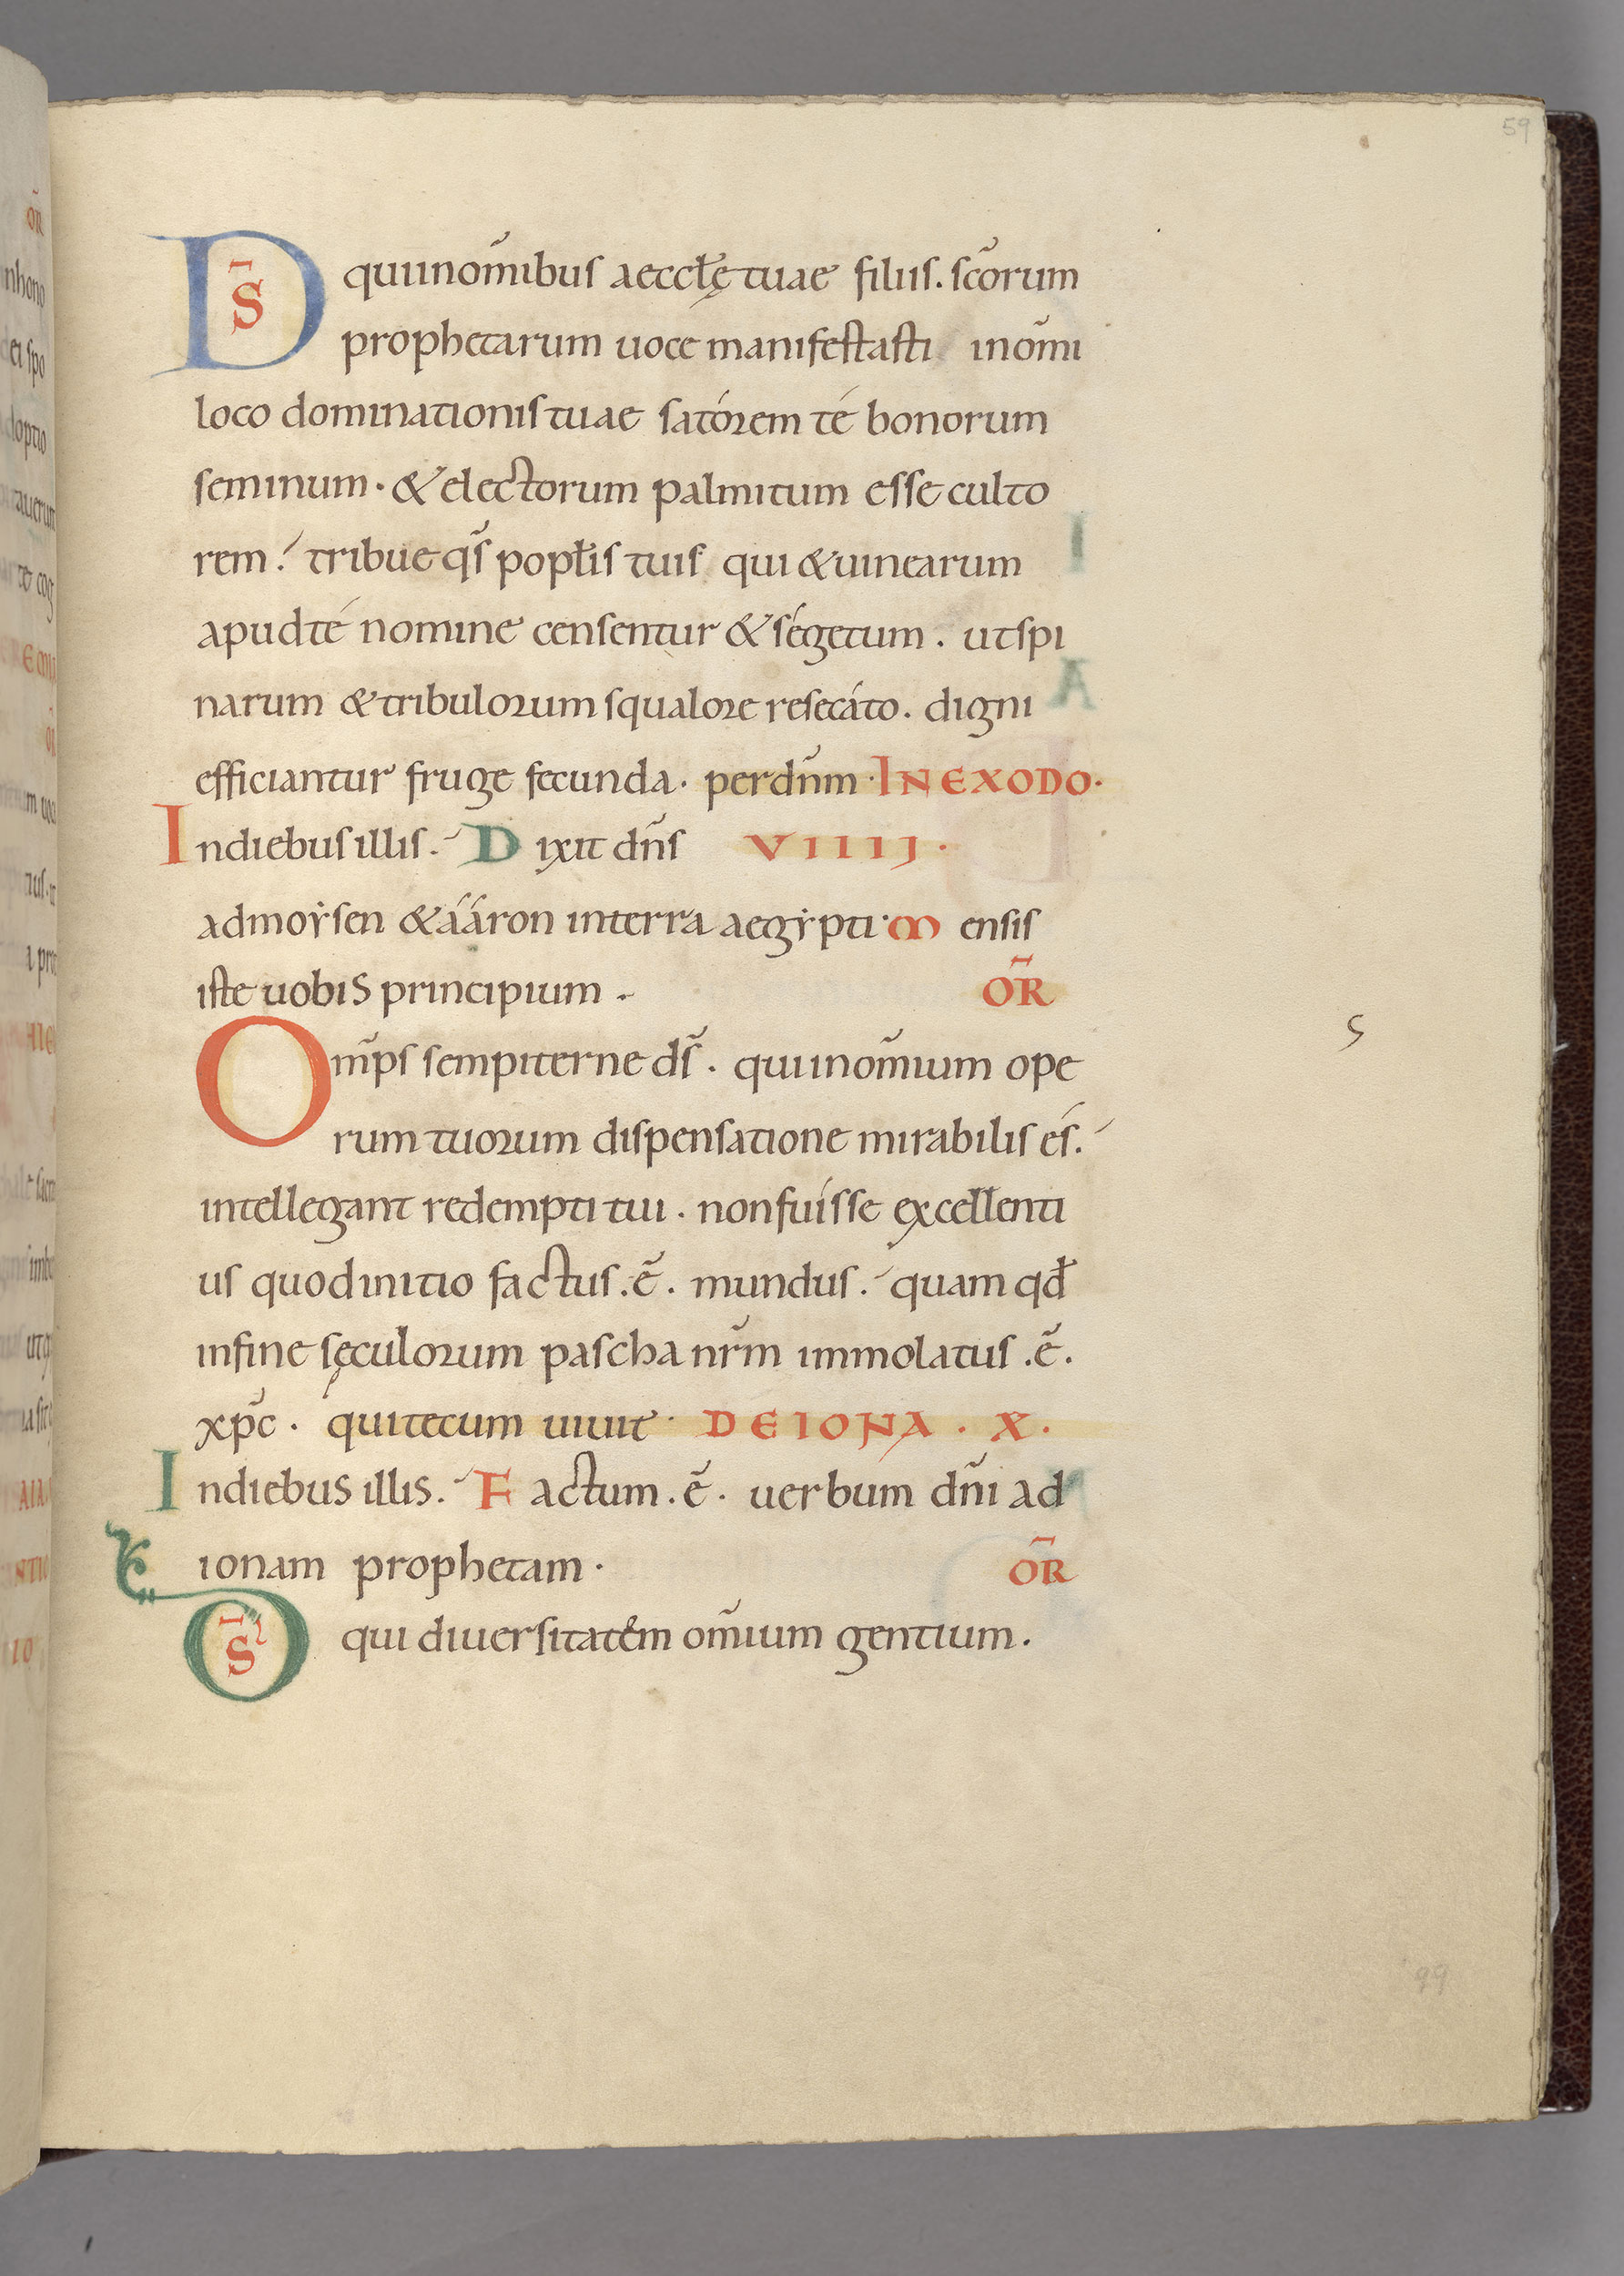 59
D̄S quiinom̄ibus aeccłę tuae filiis. sc̄orum
prophetarum uoce manifestasti inom̄i
loco dominationis tuae satórem té bonorum
seminum. & electorum palmitum esse culto
rem. tribue qs̄ popłis tuis qui & uinearum
apud té nomine censentur & ségetum. ut spi
narum & tribulorum squalore resecáto. digni
efficiantur fruge fecunda. per dn̄m. IN EXODO.
In diebus illis. Dixit dn̄s VIIIJ.
ad moẏsen & ááron in terra aegẏpti. Mensis
iste uobis principium. OR̄
Om̄ps sempiterne ds̄. qui inom̄ium ope
rum tuorum dispensatione mirabilis és.
intellegant redempti tui. non fuísse excellenti
us quod initio factus. ē. mundus. quam qđ
in fine sęculorum pascha nr̄m immolatus. ē.
xp̄c. qui tecum uiuit. DE IONA. X.
In diebus illis. Factum. ē. uerbum dn̄i ad
ionam prophetam. OR̄
D̄S qui diuersitatem om̄ium gentium.
99